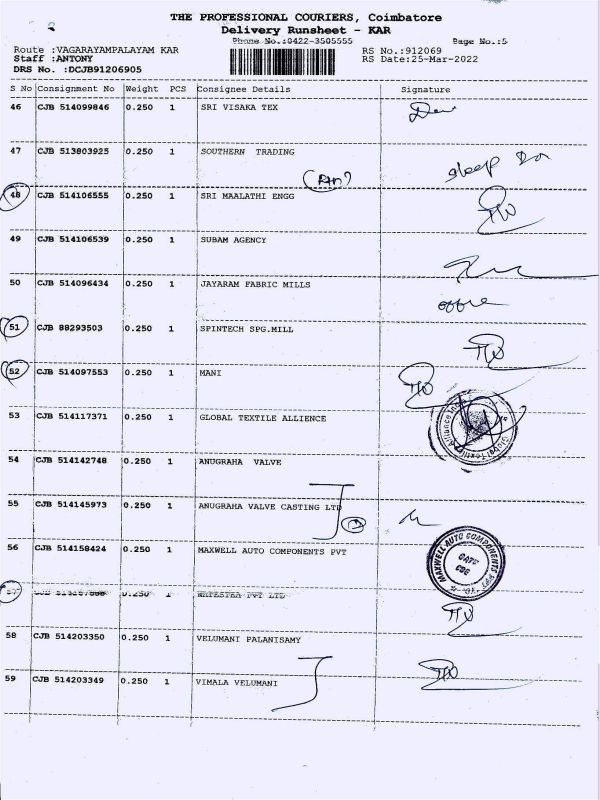 THE PROFESSIONAL COURIERS, Coimbatore
Delivery Runsheet - KAR
Phone No.:0422-3505555 Page No.:5
Route :VAGARAYAMPALAYAM KAR RS No.:912069
Staff :ANTONY RS Date:25-Mar-2022
DRS No. :DCJB91206905
S No Consignment No Weight PCS Consignee Details Signature
46 CJB 514099846 0.250 1 SRI VISAKA TEX
47 CJB 513803925 0.250 1 SOUTHERN TRADING
48 CJB 514106555 0.250 1 SRI MAALATHI ENGG
49 CJB 514106539 0.250 1 SUBAM AGENCY
50 CJB 514096434 0.250 1 JAYARAM FABRIC MILLS
office
51 CJB 88293503 0.250 1 SPINTECH SPG.MILL
52 CJB 514097553 0.250 1 MANI
53 CJB 514117371 0.250 1 GLOBAL TEXTILE ALLIENCE
54 CJB 514142748 0.250 1 ANUGRAHA VALVE
55 CJB 514145973 0.250 1 ANUGRAHA VALVE CASTING LTD
56 CJB 514158424 0.250 1 MAXWELL AUTO COMPONENTS PVT
MAXWELL AUTO COMPONENTS
PVT LTD
57 0.250 1 PVT LTD
58 CJB 514203350 0.250 1 VELUMANI PALANISAMY
59 CJB 514203349 0.250 1 VIMALA VELUMANI